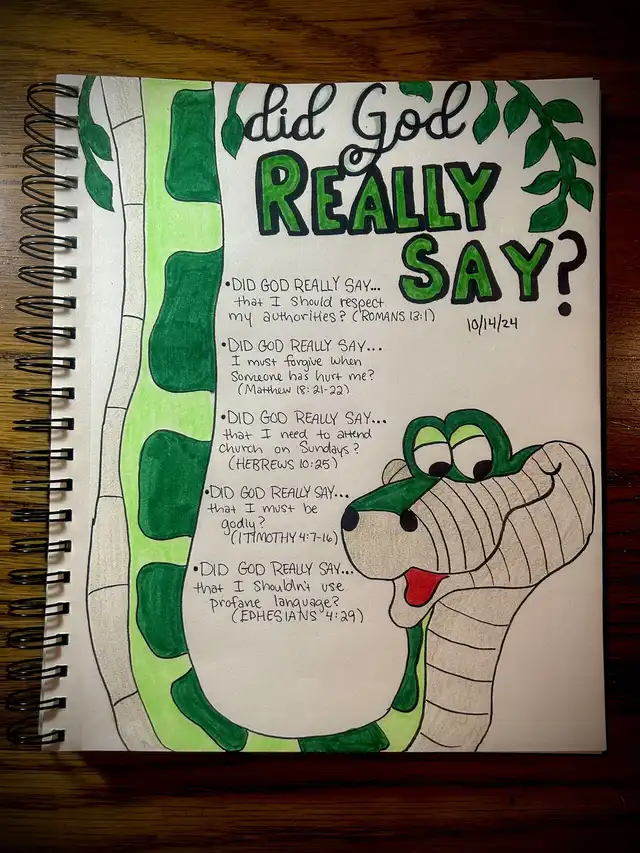 did God
REALLY
SAY?
10/14/24
•DID GOD REALLY SAY...
that I should respect
my authorities? (ROMANS 13:1)
•DID GOD REALLY SAY...
I must forgive when
someone has hurt me?
(Matthew 18:21-22)
•DID GOD REALLY SAY...
that I need to attend
church on Sundays?
(HEBREWS 10:25)
•DID GOD REALLY SAY...
that I must be
godly?
(1 TIMOTHY 4:7-16)
•DID GOD REALLY SAY...
that I shouldn't use
profane language?
(EPHESIANS 4:29)